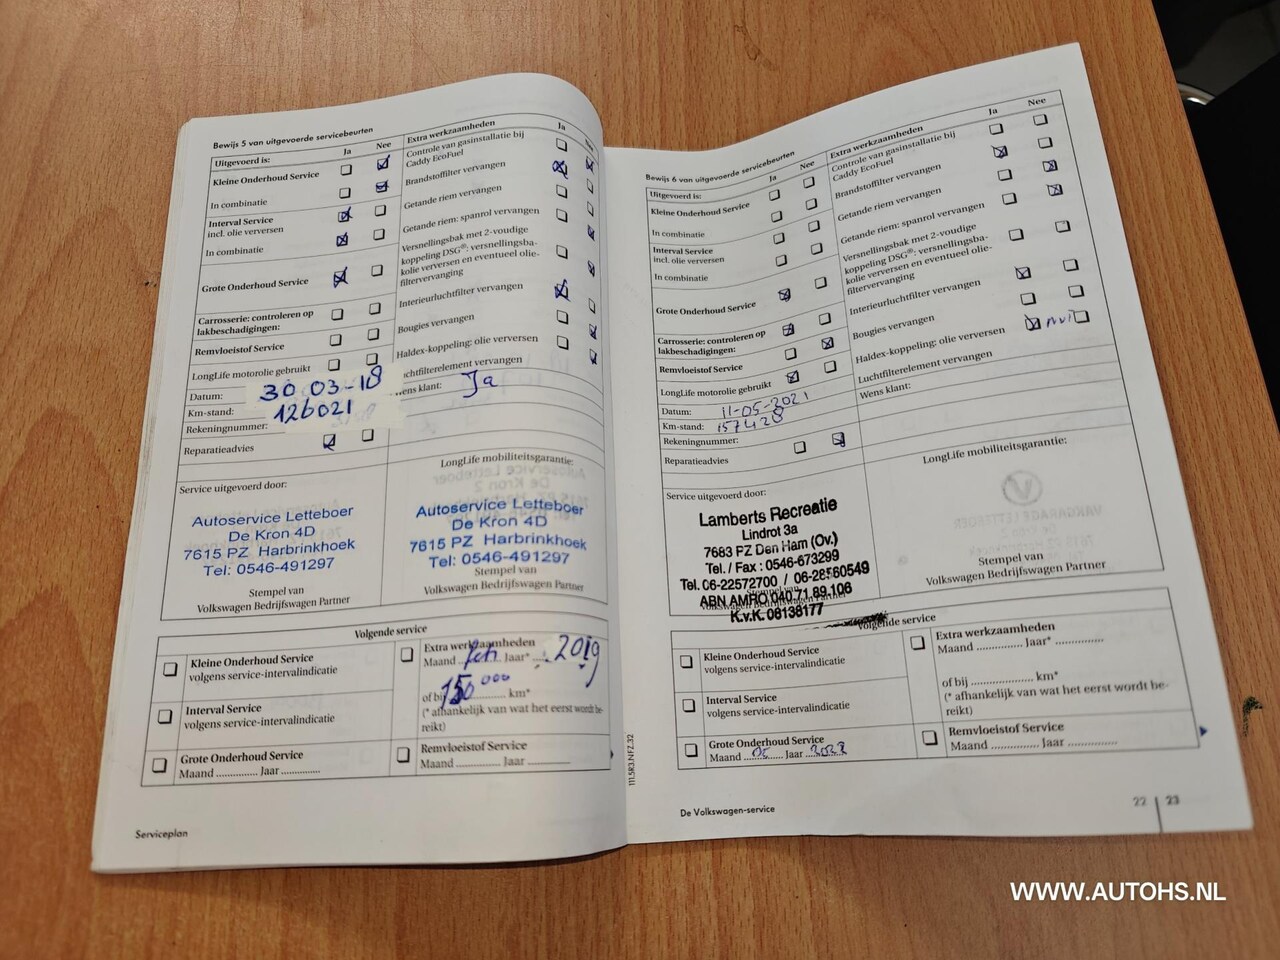 Bewijs 5 van uitgevoerde servicebeurten
Uitgevoerd is:
Ja
Nee
Kleine Onderhoud Service
In combinatie
Interval Service
incl. olie verversen
In combinatie
Grote Onderhoud Service
Carrosserie: controleren op
lakbeschadigingen:
Remvloeistof Service
LongLife motorolie gebruikt
Datum:
30 03-18
Km-stand:
126021
Rekeningnummer:
Reparatieadvies
Extra werkzaamheden
Ja
Controle van gasinstallatie bij
Caddy EcoFuel
Brandstoffilter vervangen
Getande riem vervangen
Getande riem: spanrol vervangen
Versnellingsbak met 2-voudige
koppeling DSG®: versnellingsba-
kolie verversen en eventueel olie-
filtervervanging
Interieurluchtfilter vervangen
Bougies vervangen
Haldex-koppeling: olie verversen
uchtfilterelement vervangen
Wens klant:
Ja
LongLife mobiliteitsgarantie:
Service uitgevoerd door:
Autoservice Letteboer
De Kron 4D
7615 PZ Harbrinkhoek
Tel: 0546-491297
Stempel van
Volkswagen Bedrijfswagen Partner
Autoservice Letteboer
De Kron 4D
7615 PZ Harbrinkhoek
Tel: 0546-491297
Stempel van
Volkswagen Bedrijfswagen Partner
Volgende service
Kleine Onderhoud Service
volgens service-intervalindicatie
Interval Service
volgens service-intervalindicatie
Grote Onderhoud Service
Maand ............. Jaar .............
Extra werkzaamheden
Maand Jaar* 2019
of bij 150 000 km*
(* afhankelijk van wat het eerst wordt be-
reikt)
Remvloeistof Service
Maand ............. Jaar .............
Serviceplan
111.5R3.NFZ.32
Bewijs 6 van uitgevoerde servicebeurten
Uitgevoerd is:
Ja
Nee
Kleine Onderhoud Service
In combinatie
Interval Service
incl. olie verversen
In combinatie
Grote Onderhoud Service
Carrosserie: controleren op
lakbeschadigingen:
Remvloeistof Service
LongLife motorolie gebruikt
Datum:
11-05-2021
Km-stand:
157428
Rekeningnummer:
Reparatieadvies
Extra werkzaamheden
Ja
Nee
Controle van gasinstallatie bij
Caddy EcoFuel
Brandstoffilter vervangen
Getande riem vervangen
Getande riem: spanrol vervangen
Versnellingsbak met 2-voudige
koppeling DSG®: versnellingsba-
kolie verversen en eventueel olie-
filtervervanging
Interieurluchtfilter vervangen
Bougies vervangen
Haldex-koppeling: olie verversen
Luchtfilterelement vervangen
Wens klant:
LongLife mobiliteitsgarantie:
Service uitgevoerd door:
Lamberts Recreatie
Lindrot 3a
7683 PZ Den Ham (Ov.)
Tel. / Fax : 0546-673299
Tel. 06-22572700 / 06-28560549
ABN AMRO 040.71.89.106
K.v.K. 08138177
Stempel van
Volkswagen Bedrijfswagen Partner
Volgende service
Kleine Onderhoud Service
volgens service-intervalindicatie
Interval Service
volgens service-intervalindicatie
Grote Onderhoud Service
Maand 05 Jaar
Extra werkzaamheden
Maand ............... Jaar* ...............
of bij .................... km*
(* afhankelijk van wat het eerst wordt be-
reikt)
Remvloeistof Service
Maand ............... Jaar ...............
De Volkswagen-service
22 | 23
WWW.AUTOHS.NL